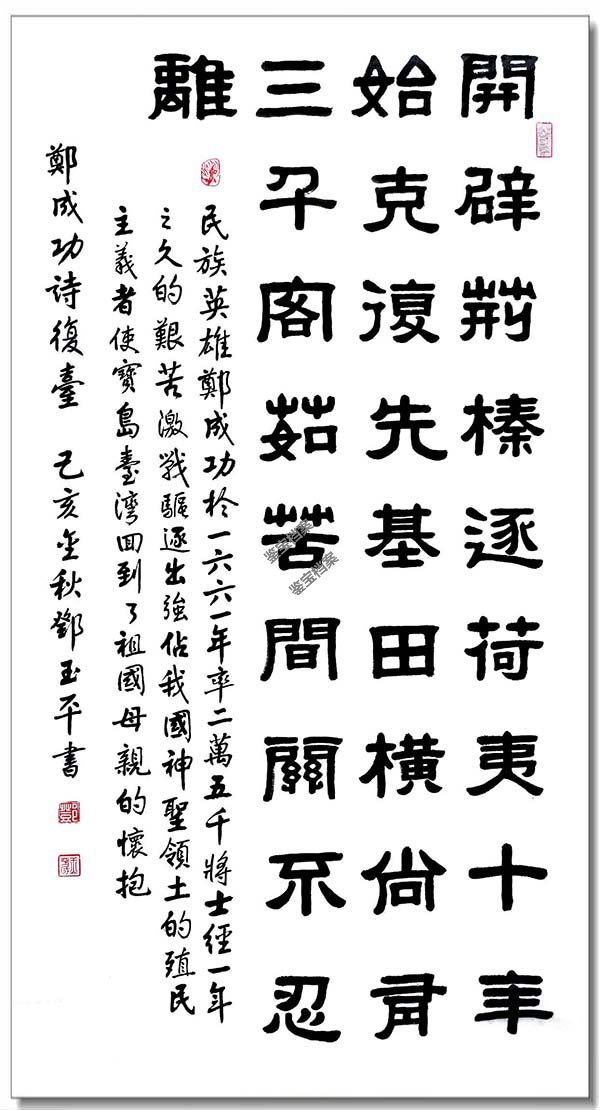 開辟荊榛逐荷夷十年
始克復先基田橫尚有
三千客茹苦間關不忍
離
民族英雄鄭成功於一六六一年率二萬五千將士經一年
之久的艱苦激戰驅逐出強佔我國神聖領土的殖民
主義者使寶島臺灣回到了祖國母親的懷抱
鄭成功詩復臺 己亥金秋鄧玉平書
鉴宝档案
鉴宝档案